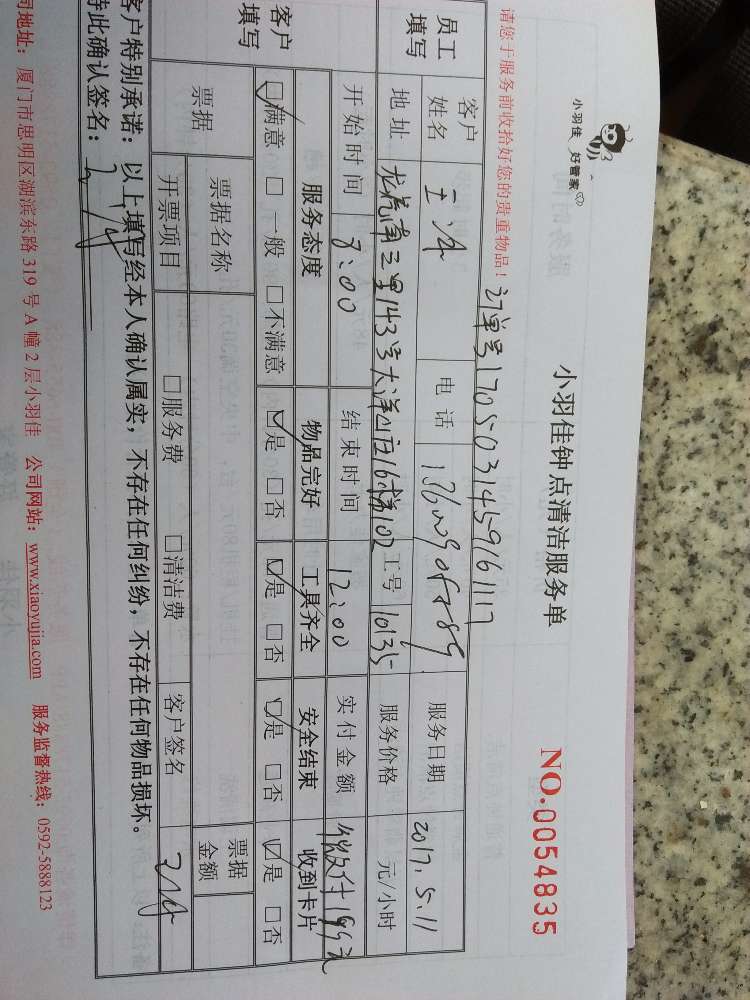 小羽佳 好管家
小羽佳钟点清洁服务单
NO.0054835
请您于服务前收拾好您的贵重物品!
订单号17050314591611117
员工填写 客户姓名 电话 服务日期 2017.5.11
地址 143号大洋山庄16梯102 工号 10135 服务价格 元/小时
开始时间 8:00 结束时间 12:00 实付金额
客户填写 服务态度 物品完好 工具齐全 安全结束 收到卡片
☑满意 □一般 □不满意 ☑是 □否 ☑是 □否 ☑是 □否 ☑是 □否
票据 票据名称 票据金额
开票项目 □服务费 □清洁费 客户签名
客户特别承诺:以上填写经本人确认属实,不存在任何纠纷,不存在任何物品损坏。
持此确认签名:
司地址:厦门市思明区湖滨东路 319 号 A 幢 2 层小羽佳 公司网站:www.xiaoyujia.com 服务监督热线:0592-5888123